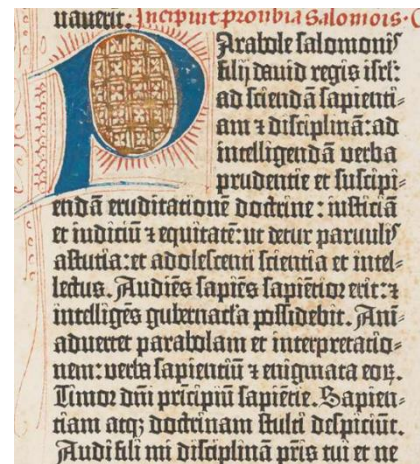 nauerit. Incipiunt prouerbia Salomois.
Parabole salomonis
filij dauid regis isrl:
ad sciendā sapienti-
am ⁊ disciplinā: ad
intelligendā verba
prudentie et suscipi-
endā eruditationē doctrine: iusticiā
et iudiciū ⁊ equitatē: ut detur paruulis
astutia: et adolescenti scientia et intel-
lectus. Audiēs sapiēs sapiētior erit: ⁊
intelligēs gubernacla possidebit. Ani-
aduertet parabolam et interpretatio-
nem: verba sapientiū ⁊ enigmata eoꝝ.
Timor dn̄i prīcipiū sapiētie. Sapien-
tiam atqꝫ doctrinam stulti despiciūt.
Audi fili mi disciplinā pr̄is tui et ne